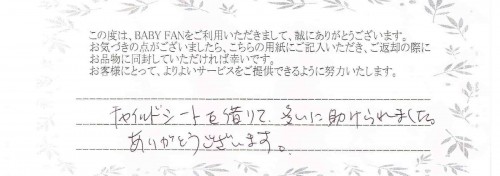 この度は、BABY FANをご利用いただきまして、誠にありがとうございます。
お気づきの点がございましたら、こちらの用紙にご記入いただき、ご返却の際に
お品物に同封していただければ幸いです。
お客様にとって、よりよいサービスをご提供できるように努力いたします。
チャイルドシートを借りて、多いに助けられました。
ありがとうございます。